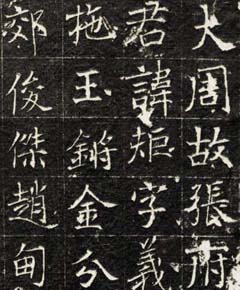 大周故張府
君諱矩字義
拖玉鏘金分
郊俊傑趙甸